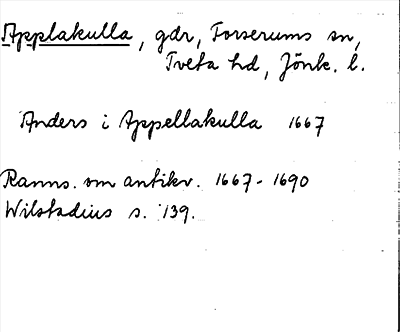 Applakulla, gdr, Forserums sn,
Tveta hd, Jönk. l.
Anders i Appellakulla 1667
Ranns. om antikv. 1667-1690
Wilstadius s. 139.